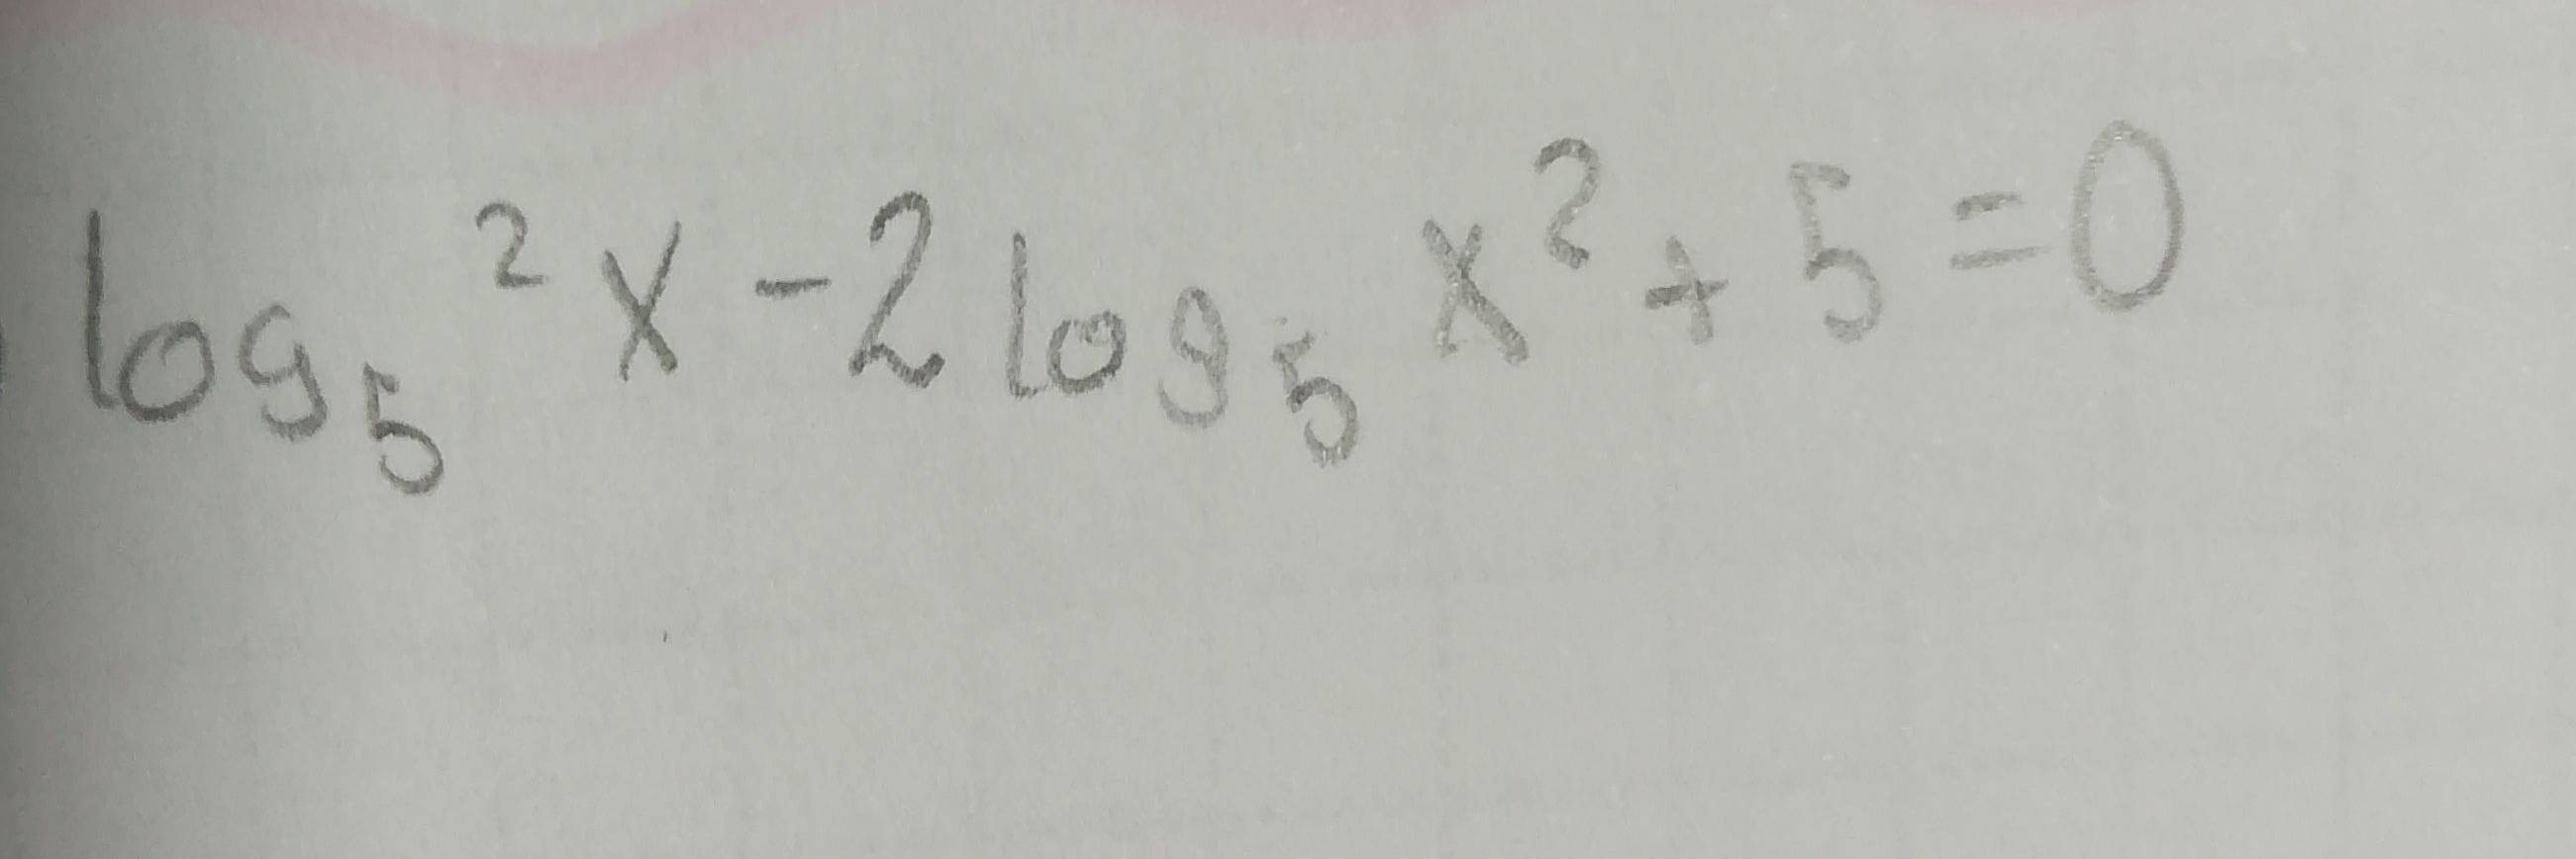 log₅²x-2log₅x²+5=0